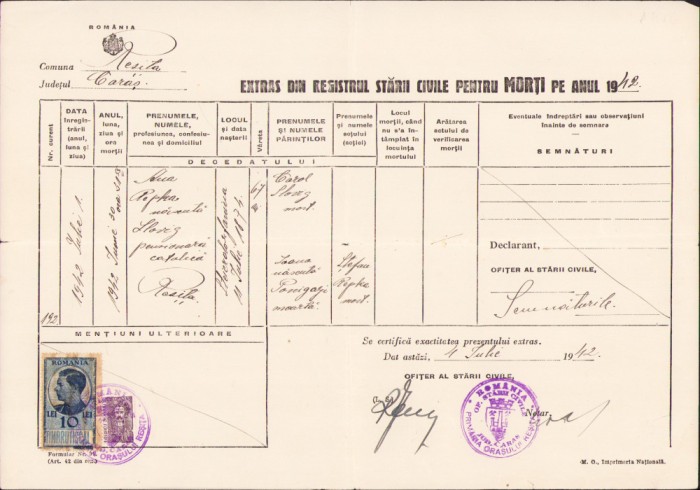 ROMÂNIA
Comuna Resita
Județul Caraș
EXTRAS DIN REGISTRUL STĂRII CIVILE PENTRU MORȚI PE ANUL 1942.
Nr. curent
DATA înregistrării (anul, luna și ziua)
ANUL, luna, ziua și ora morții
PRENUMELE, NUMELE, profesiunea, confesiunea și domiciliul
LOCUL și data nașterii
Vârsta
PRENUMELE ȘI NUMELE PĂRINȚILOR
Prenumele și numele soțului (soției)
Locul morții, când nu s'a întâmplat în locuința mortului
Arătarea actului de verificarea morții
Eventuale îndreptări sau observațiuni înainte de semnare
SEMNĂTURI
DECEDATULUI
192
1942 Iulie 1.
1942 Iunie 30
Ana
Repka
născută
Slovig
pensionară
catolică
Resita
11 Iulie 1874
67
Carol
Slovig
mort.
Ioana
născută
moartă.
Stefan
Repka
mort.
Declarant,
OFIȚER AL STĂRII CIVILE,
Semnăturile.
MENȚIUNI ULTERIOARE
Se certifică exactitatea prezentului extras.
Dat astăzi, 4 Iulie 1942.
OFIȚER AL STĂRII CIVILE,
Notar,
ROMÂNIA
OF. STĂRII CIVILE
JUD. CARAȘ
PRIMĂRIA ORAȘULUI REȘIȚA
ROMANIA
LEI 10 LEI
TIMBRU FISCAL
Formular Nr.
(Art. 43 din
(M. O., Imprimeria Națională.